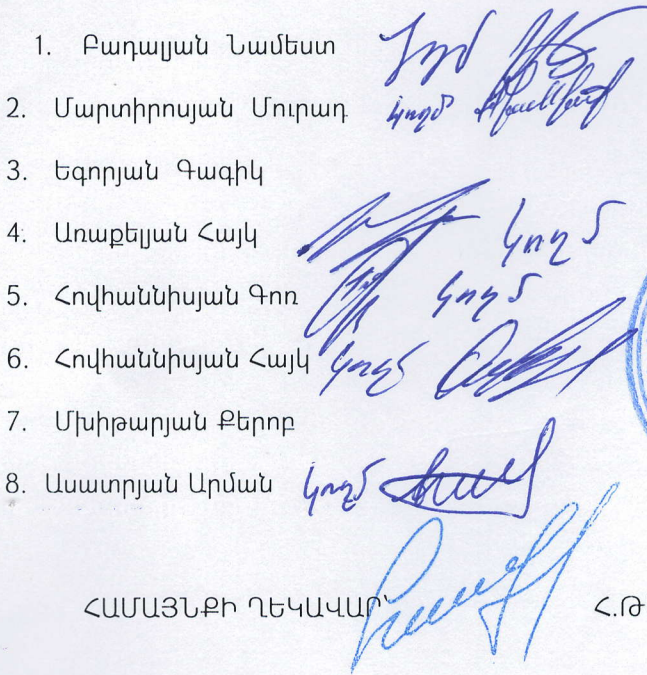 1. Բադալյան Նամեստ կողմ
2. Մարտիրոսյան Մուրադ կողմ
3. Եգորյան Գագիկ
4. Առաքելյան Հայկ կողմ
5. Հովհաննիսյան Գոռ կողմ
6. Հովհաննիսյան Հայկ կողմ
7. Մխիթարյան Քերոբ
8. Ասատրյան Արման կողմ
ՀԱՄԱՅՆՔԻ ՂԵԿԱՎԱՐ՝ Հ.Թ